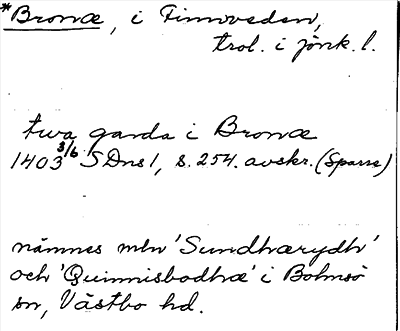 *Bronæ, i Finnveden,
trol. i jönk. l.
twa garda i Bronæ
1403 3/6 SDns 1, s. 254. avskr. (Sparre)
nämnes mln 'Sundhærydh'
och 'Quinnisbodhæ' i Bolmsö
sn, Västbo hd.